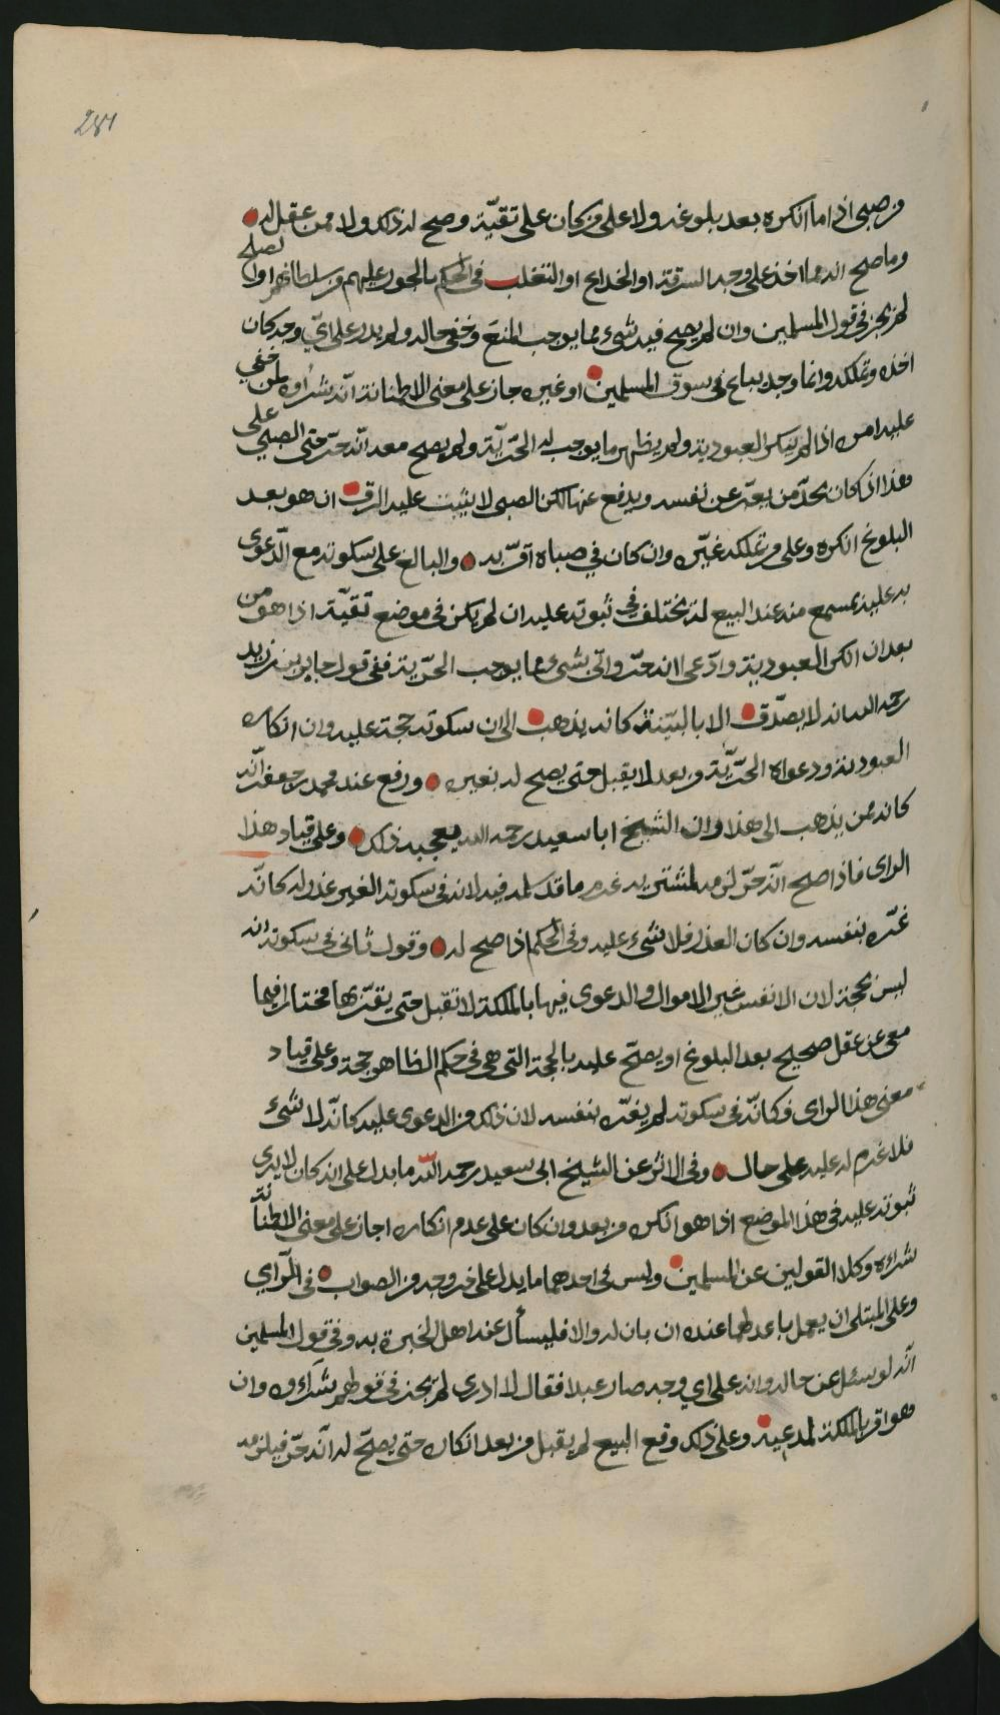 281
من صبي اذا ما انكره بعد بلوغه ولا على من كان على تقيّة وصح له ذلك ولا ممن عقل له
وما صح انه مما اخذ على وجه السرقة او الخدايع او التغلب في الحكم بالجور عليهم من سلطانهم او لا يصلح
لم يجز في قول المسلمين وان لم يصح فيه شيء مما يوجب المنع وخفي حاله ولم يدر على ايّ وجه كان
اخذه وتملكه وانما وجد يباع في سوق المسلمين او غيره جاز على معنى الاطمئنانة انّه شراؤه لمن خفي
عليه امره اذا لم ينكر العبودية ولم يظهر ما يوجب له الحرّيّة ولم يصح معه انّه حرّ حتى الصبي على
هذا اذا كان بحدّ من يعبّر عن نفسه ويدفع عنها لكن الصبي لا يثبت عليه الرق ان هو بعد
البلوغ انكره وعلى من تملكه غيّره وان كان في صباه اقرّ به والبالغ على سكوته مع الدّعوى
به عليه بمسمع منه عند البيع له يختلف في ثبوته عليه ان لم يكن في موضع تقيّة اذا هو من
بعد ان انكر العبودية وادّعى انه حرّ واتى بشيء مما يوجب الحرّية ففي قول جابر بن زيد
رحمه الله انه لا يصدّق الا بالبيّنة كانه يذهب الى ان سكوته حجة عليه وان انكاره
العبودية ودعواه الحرّيّة من بعد لا يقبل حتى يصح له بغيره ورفع عند محمد بن جعفر انّه
كانه ممن يذهب الى هذا وان الشيخ ابا سعيد رحمه الله يعجبه ذلك وعلى قياد هذا
الراى فاذا صح انّه حرّ لزمه لمشتريه غرم ما قد سلمه فيه لانه في سكوته الغير عذر له كانّه
غرّه بنفسه وان كان العذر فلا شيء عليه وفي الحكم اذا صح له وقول ثاني في سكوته انه
ليس بحجة لان الانفس غير الاموال والدعوى فيها بالملكة لا تقبل حتى يقرّ بها مختارا فيها
معي عن عقل صحيح بعد البلوغ او يصحّ عليه بالحجة التى هي في حكم الظاهر حجة وعلى قياد
معنى هذا الراى فكانّه في سكوته لم يغرّه بنفسه لان ذلك من الدعوى عليه كانّه لا شيء
فلا غرم له عليه على حال وفي الاثر عن الشيخ ابى سعيد رحمه الله ما يدل على انه كان لا يرى
ثبوته عليه في هذا الموضع اذا هو انكره من بعد وان كان على عدم انكاره اجاز على معنى الاطمئنانة
شراءه وكلا القولين عن المسلمين وليس في احدهما ما يدل على خروجه من الصواب في الرّأي
وعلى المبتلى ان يعمل باعدلهما عنده ان بان له والا فليسأل عنه اهل الخبرة به وفي قول المسلمين
انّه لو سئل عن حاله وانه على اي وجه صار عبدا فقال لا ادرى لم يجز في قولهم شراؤه وان
هو اقر بالملكة لمدعيه وعلى ذلك وقع البيع لم يقبل من بعد انكاره حتى يصحّ له انّه حرّ فيلزمه